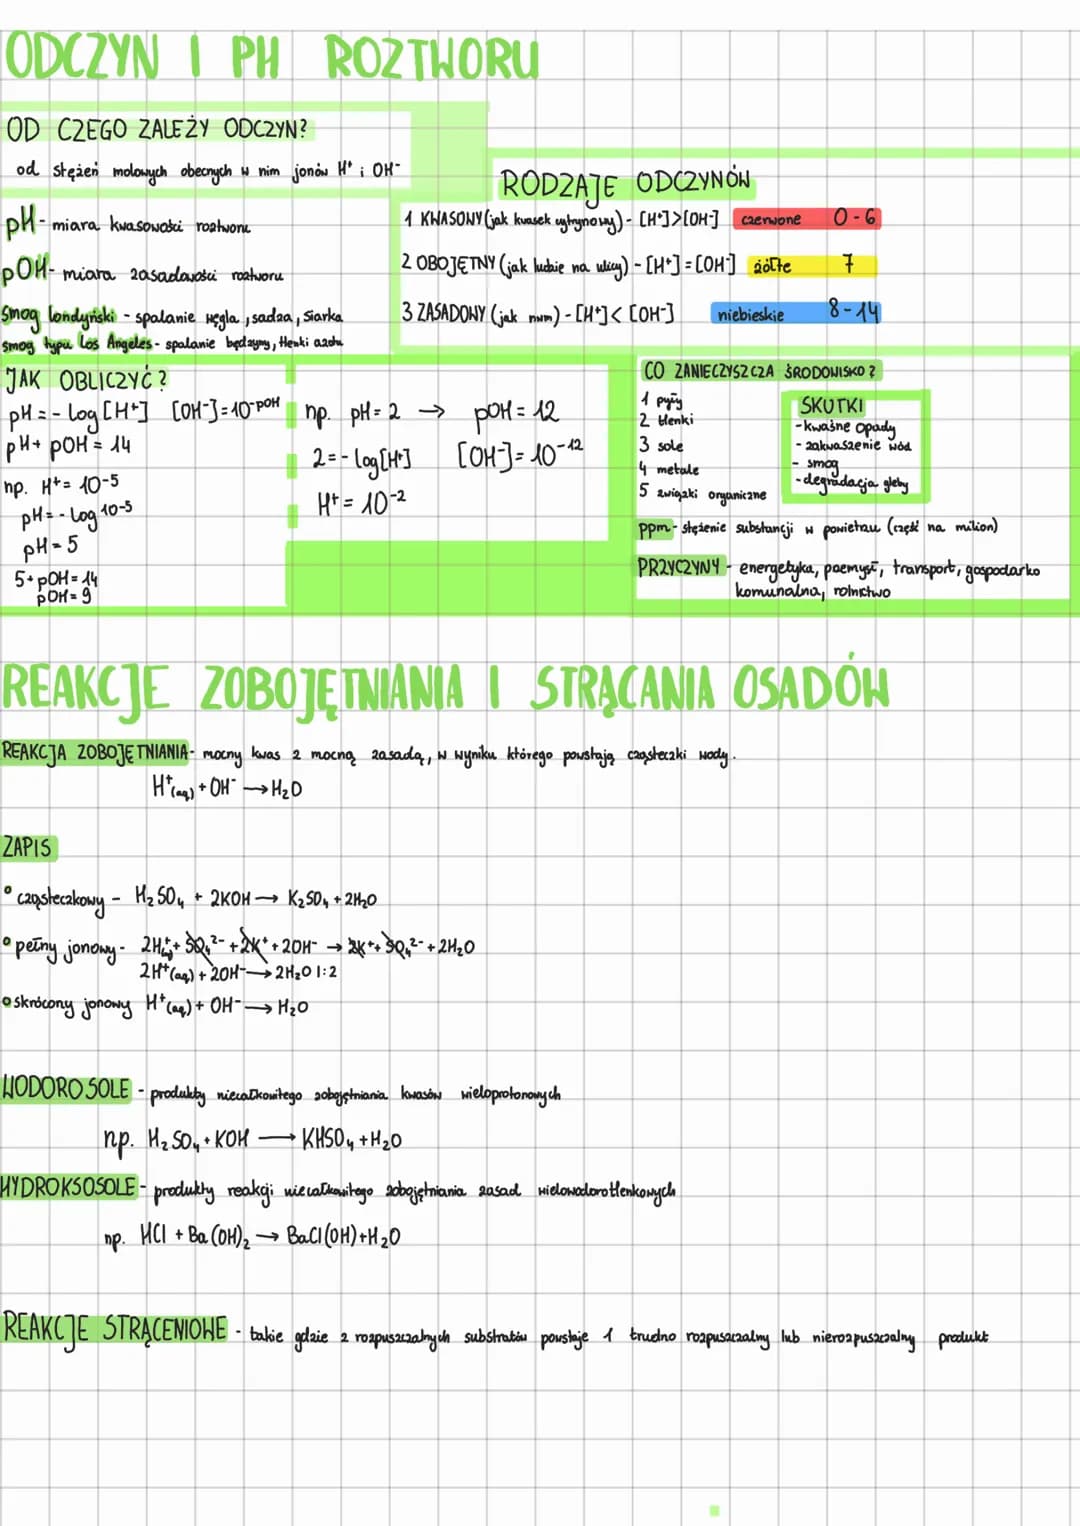 ODCZYN I PH ROZTWORU
OD CZEGO ZALEŻY ODCZYN?
od stężeń molowych obecnych w nim jonów H⁺ i OH⁻
pH - miara kwasowości roztworu
pOH - miara zasadowości roztworu
Smog londyński - spalanie węgla, sadza, siarka
smog typu Los Angeles - spalanie benzyny, tlenki azotu
RODZAJE ODCZYNÓW
1 KWASONY (jak kwasek cytrynowy) - [H⁺]>[OH⁻] czerwone 0-6
2 OBOJĘTNY (jak ludzie na ulicy) - [H⁺]=[OH⁻] żółte 7
3 ZASADONY (jak nwm) - [H⁺]<[OH⁻] niebieskie 8-14
JAK OBLICZYĆ?
pH = - log [H⁺] [OH⁻]=10⁻ᵖᴼᴴ
pH + pOH = 14
np. H⁺ = 10⁻⁵
pH = - log 10⁻⁵
pH = 5
5 + pOH = 14
pOH = 9
np. pH = 2 → pOH = 12
2 = - log[H⁺] [OH⁻] = 10⁻¹²
H⁺ = 10⁻²
CO ZANIECZYSZCZA ŚRODOWISKO?
1 pyły
2 tlenki
3 sole
4 metale
5 związki organiczne
SKUTKI
- kwaśne opady
- zakwaszenie wód
- smog
- degradacja gleby
ppm - stężenie substancji w powietrzu (część na milion)
PRZYCZYNY - energetyka, przemysł, transport, gospodarka
komunalna, rolnictwo
REAKCJE ZOBOJĘTNIANIA I STRĄCANIA OSADÓW
REAKCJA ZOBOJĘTNIANIA - mocny kwas z mocną zasadą, w wyniku którego powstają cząsteczki wody.
H⁺(aq) + OH⁻ → H₂O
ZAPIS
° cząsteczkowy - H₂SO₄ + 2KOH → K₂SO₄ + 2H₂O
° pełny jonowy - 2H⁺(aq) + SO₄²⁻ + 2K⁺ + 2OH⁻ → 2K⁺ + SO₄²⁻ + 2H₂O
2H⁺(aq) + 2OH⁻ → 2H₂O 1:2
° skrócony jonowy H⁺(aq) + OH⁻ → H₂O
WODOROSOLE - produkty niecałkowitego zobojętniania kwasów wieloprotonowych
np. H₂SO₄ + KOH → KHSO₄ + H₂O
HYDROKSOSOLE - produkty reakcji niecałkowitego zobojętniania zasad wielowodorotlenkowych
np. HCl + Ba(OH)₂ → BaCl(OH) + H₂O
REAKCJE STRĄCENIOWE - takie gdzie z rozpuszczalnych substratów powstaje 1 trudno rozpuszczalny lub nierozpuszczalny produkt